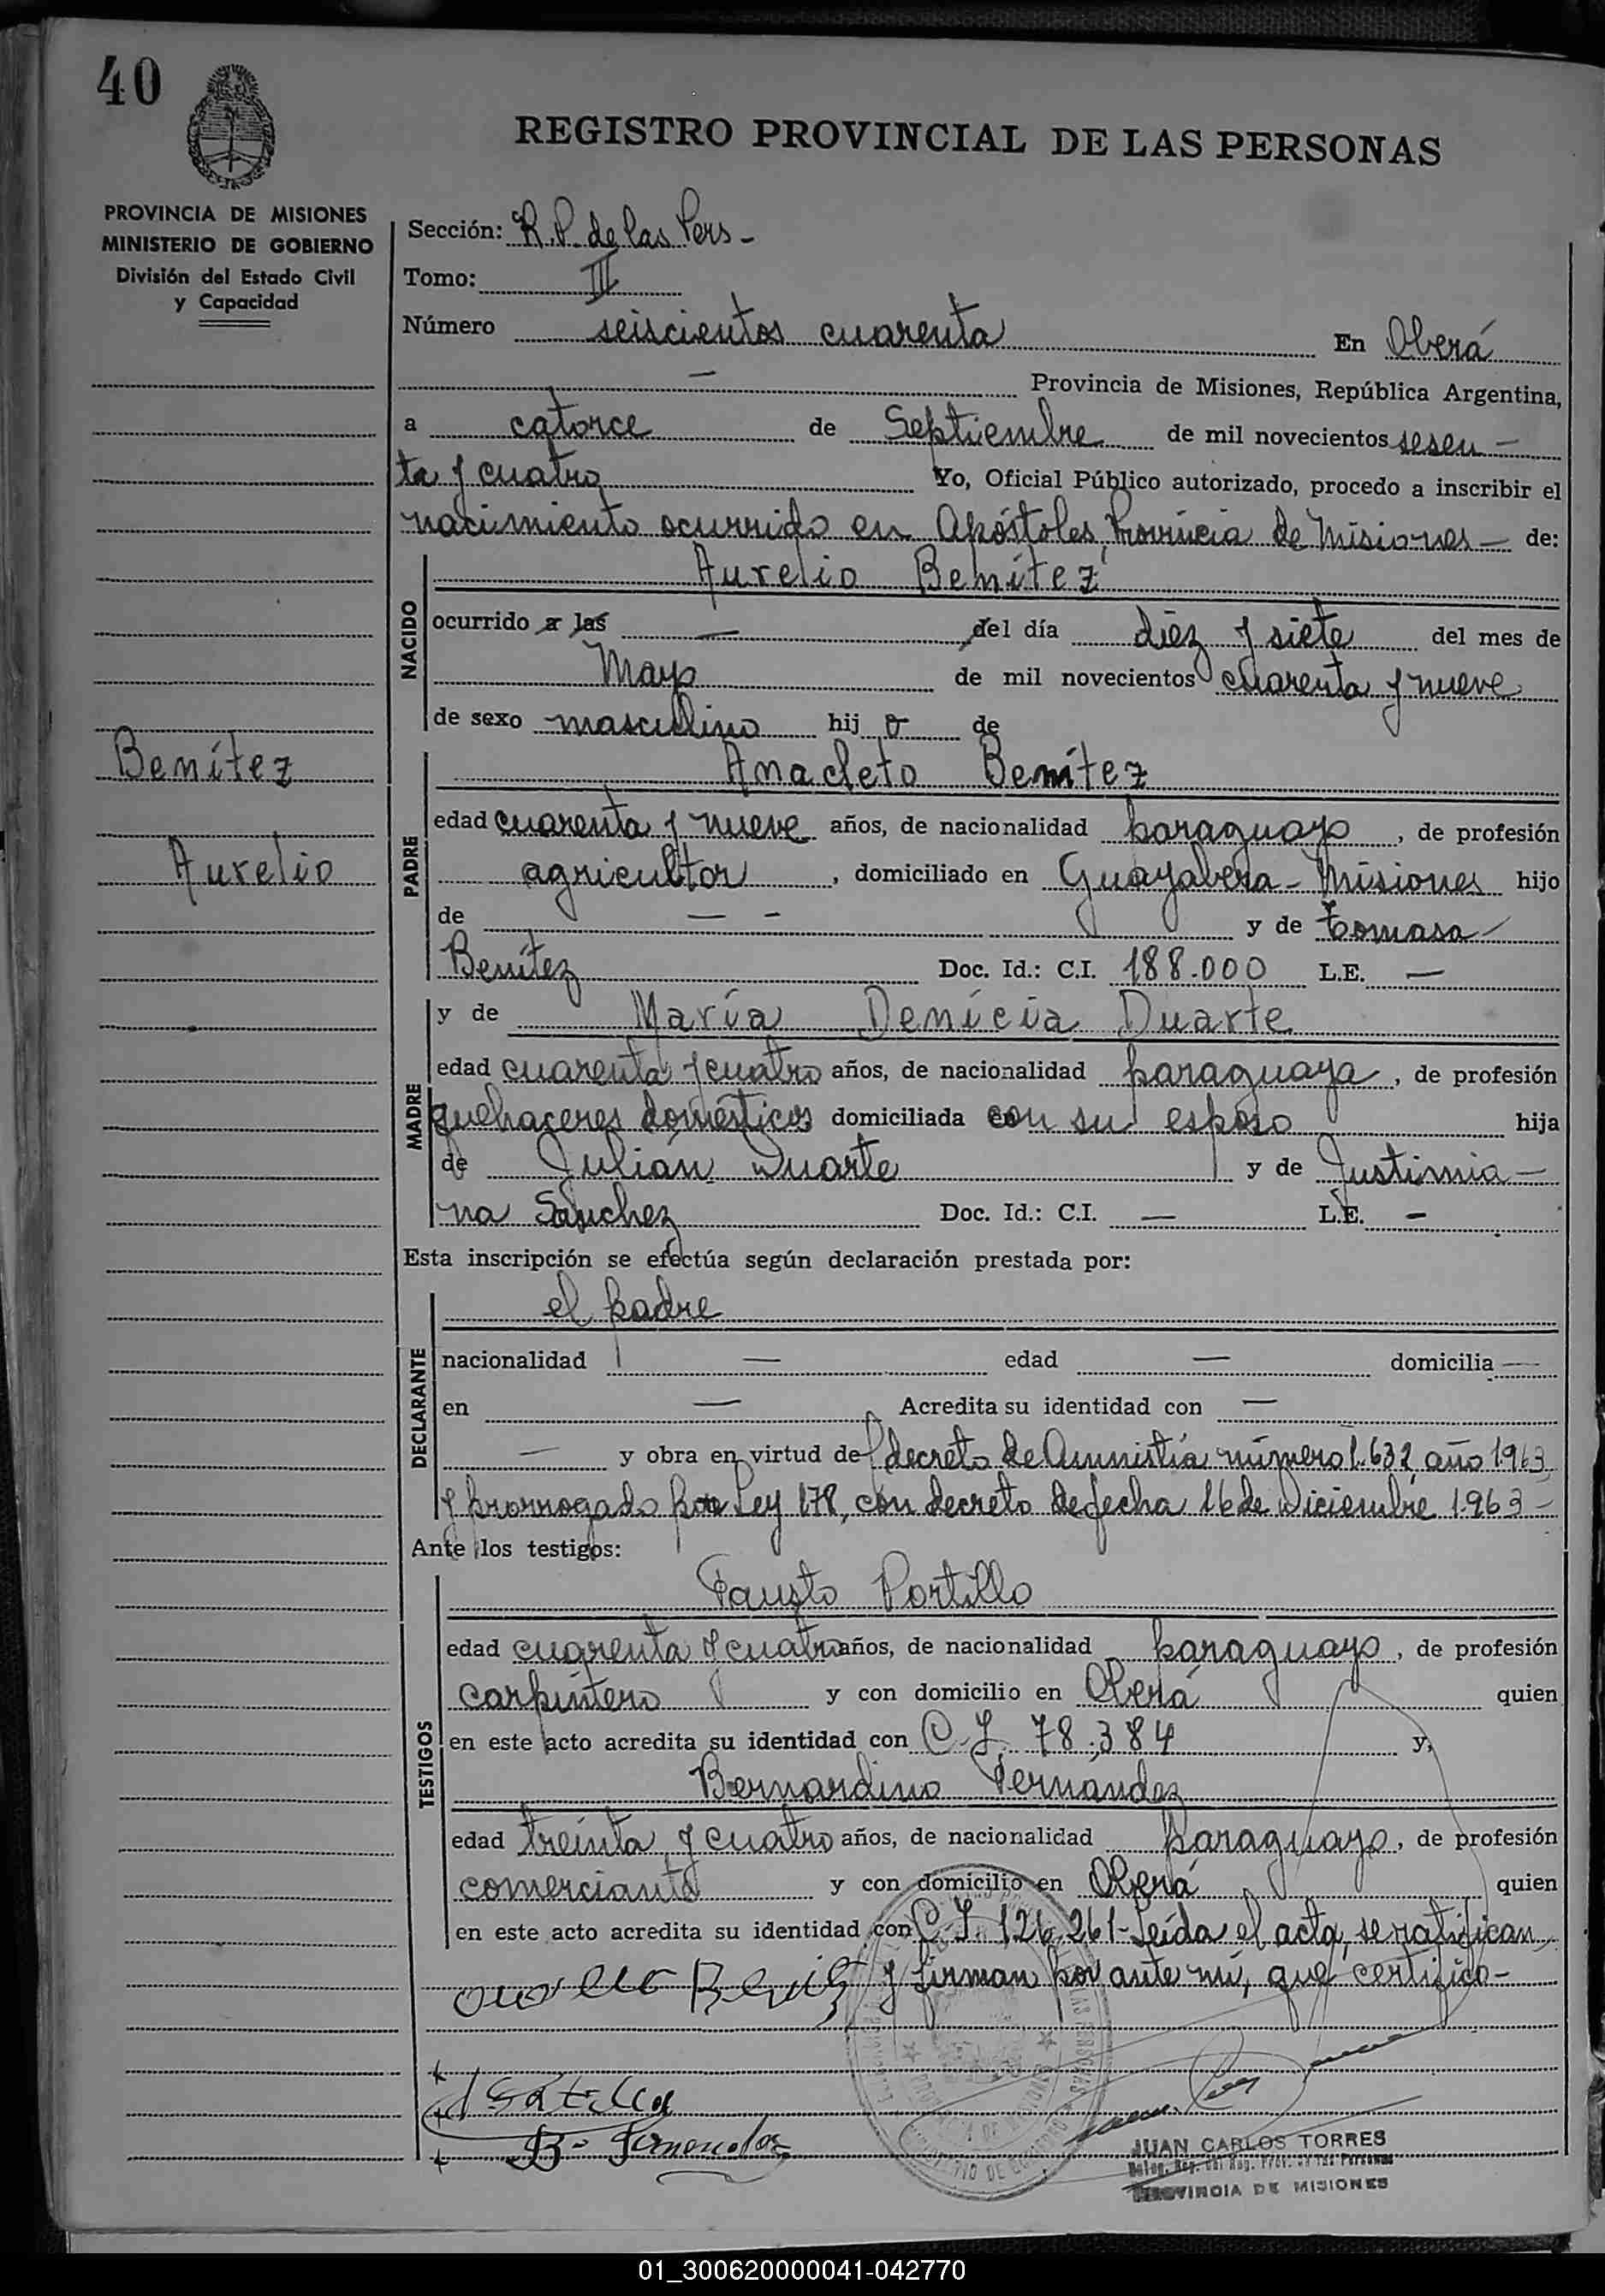 40
REGISTRO PROVINCIAL DE LAS PERSONAS
PROVINCIA DE MISIONES
MINISTERIO DE GOBIERNO
División del Estado Civil
y Capacidad
Sección: R. P. de las Pers -
Tomo: III
Número seiscientos cuarenta En Oberá
— Provincia de Misiones, República Argentina,
a catorce de Septiembre de mil novecientos sesen -
ta y cuatro Yo, Oficial Público autorizado, procedo a inscribir el
nacimiento ocurrido en Apóstoles, Provincia de Misiones — de:
NACIDO
Aurelio Benítez
ocurrido a las — del día diez y siete del mes de
Mayo de mil novecientos cuarenta y nueve
de sexo masculino hij o de
Benítez
Aurelio
PADRE
Anacleto Benítez
edad cuarenta y nueve años, de nacionalidad paraguayo, de profesión
agricultor, domiciliado en Guayabera - Misiones hijo
de — - y de Tomasa
Benítez Doc. Id.: C.I. 188.000 L.E. —
MADRE
y de María Denicia Duarte
edad cuarenta y cuatro años, de nacionalidad paraguaya, de profesión
quehaceres domésticos domiciliada con su esposo hija
de Julián Duarte y de Justinia -
na Sánchez Doc. Id.: C.I. — L.E. -
Esta inscripción se efectúa según declaración prestada por:
DECLARANTE
el padre
nacionalidad — edad — domicilia —
en — Acredita su identidad con —
— y obra en virtud del decreto de Amnistía número 1.632, año 1963
y prorrogado por Ley 178, con decreto de fecha 16 de Diciembre 1.963 -
Ante los testigos:
TESTIGOS
Fausto Portillo
edad cuarenta y cuatro años, de nacionalidad paraguayo, de profesión
carpintero y con domicilio en Oberá quien
en este acto acredita su identidad con C. I. 78.384 y,
Bernardino Fernández
edad treinta y cuatro años, de nacionalidad paraguayo, de profesión
comerciante y con domicilio en Oberá quien
en este acto acredita su identidad con C. I. 126.261 - Leída el acta, se ratifican
y firman por ante mí, que certifico -
B. Fernandez
JUAN CARLOS TORRES
PROVINCIA DE MISIONES
01_300620000041-042770